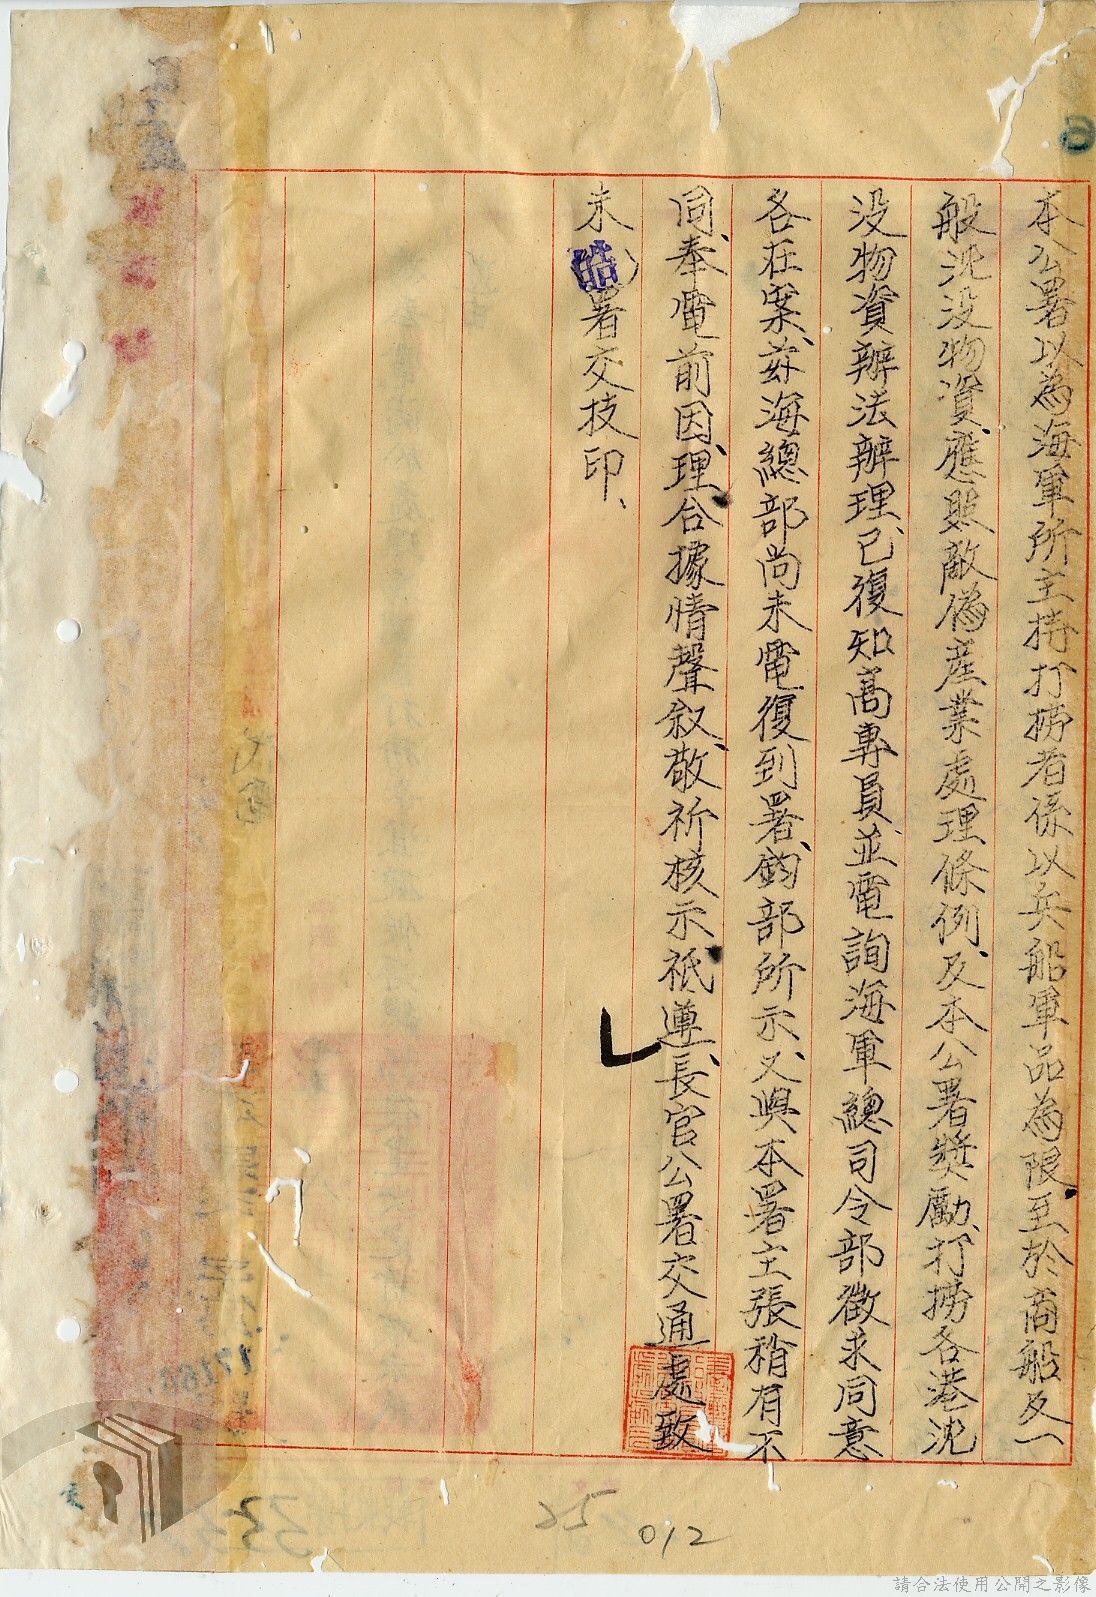 本公署以為海軍所主持打撈者係以兵船軍品為限、至於商船及一
般沈没物資、應照敵偽產業處理條例、及本公署獎勵、打撈各港沈
没物資辦法辦理、已復知高專員、並電詢海軍總司令部徵求同意
各在案、茲海總部尚未電復到署、鈞部所示、又與本署主張稍有不
同、奉電前因、理合據情聲叙、敬祈核示祇遵、長官公署交通處致
未（皓）署交技印、
6
17188
25
012
請合法使用公開之影像